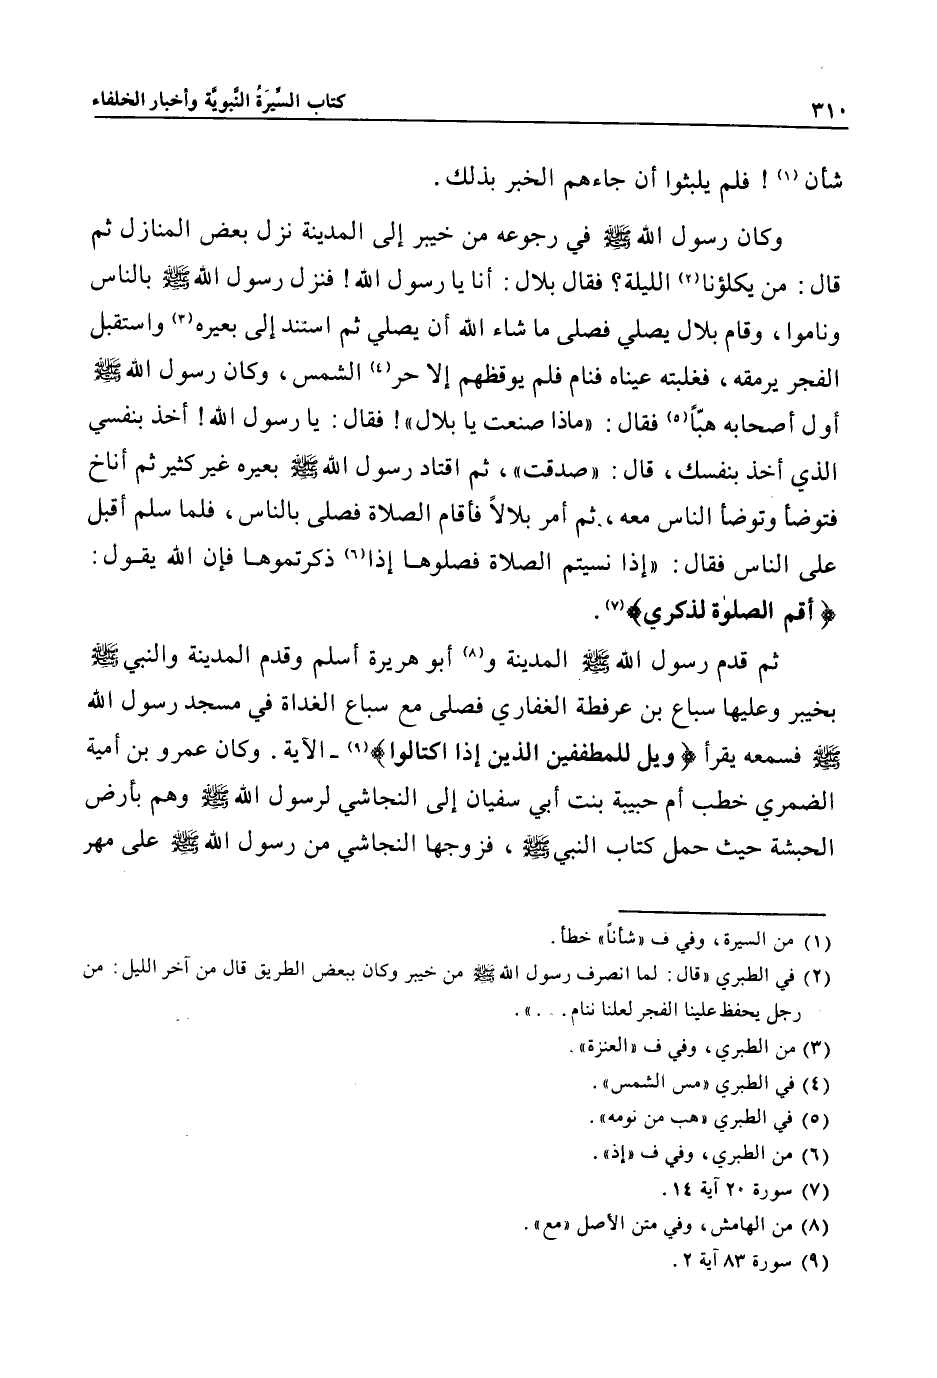 ٣١٠ كتاب السِّيرَةُ النَّبويَّة وأخبار الخلفاء
شأن (١) ! فلم يلبثوا أن جاءهم الخبر بذلك .
وكان رسول الله ﷺ في رجوعه من خيبر إلى المدينة نزل بعض المنازل ثم
قال : من يكلؤنا (٢) الليلة؟ فقال بلال : أنا يا رسول الله ! فنزل رسول الله ﷺ بالناس
وناموا ، وقام بلال يصلي فصلى ما شاء الله أن يصلي ثم استند إلى بعيره (٣) واستقبل
الفجر يرمقه ، فغلبته عيناه فنام فلم يوقظهم إلا حر (٤) الشمس ، وكان رسول الله ﷺ
أول أصحابه هبّاً (٥) فقال : «ماذا صنعت يا بلال»! فقال : يا رسول الله ! أخذ بنفسي
الذي أخذ بنفسك ، قال : «صدقت» ، ثم اقتاد رسول الله ﷺ بعيره غير كثير ثم أناخ
فتوضأ وتوضأ الناس معه ، ثم أمر بلالاً فأقام الصلاة فصلى بالناس ، فلما سلم أقبل
على الناس فقال : «إذا نسيتم الصلاة فصلوها إذا (٦) ذكرتموها فإن الله يقول :
﴿أقم الصلوٰة لذكري﴾ (٧) .
ثم قدم رسول الله ﷺ المدينة و (٨) أبو هريرة أسلم وقدم المدينة والنبي ﷺ
بخيبر وعليها سباع بن عرفطة الغفاري فصلى مع سباع الغداة في مسجد رسول الله
ﷺ فسمعه يقرأ ﴿ويل للمطففين الذين إذا اكتالوا﴾ (٩) ـ الآية . وكان عمرو بن أمية
الضمري خطب أم حبيبة بنت أبي سفيان إلى النجاشي لرسول الله ﷺ وهم بأرض
الحبشة حيث حمل كتاب النبي ﷺ ، فزوجها النجاشي من رسول الله ﷺ على مهر
(١) من السيرة ، وفي ف «شأناً» خطأ .
(٢) في الطبري «قال : لما انصرف رسول الله ﷺ من خيبر وكان ببعض الطريق قال من آخر الليل : من
رجل يحفظ علينا الفجر لعلنا ننام . . .» .
(٣) من الطبري ، وفي ف «العنزة» .
(٤) في الطبري «مس الشمس» .
(٥) في الطبري «هب من نومه» .
(٦) من الطبري ، وفي ف «إذ» .
(٧) سورة ٢٠ آية ١٤ .
(٨) من الهامش ، وفي متن الأصل «مع» .
(٩) سورة ٨٣ آية ٢ .